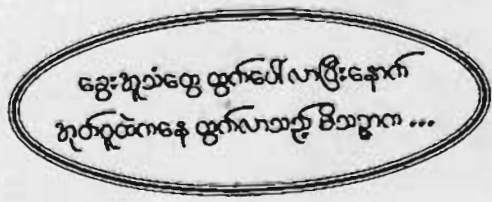 ခွေးအူသံတွေ ထွက်ပေါ် လာပြီးနောက်
အုတ်ဂူထဲကနေ ထွက်လာသည့် မိသဏ္ဍာက ...